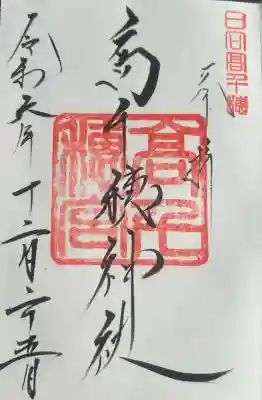 日向高千穂
奉拝
高千穂神社
高千穂宮
令和年十二月二十五日